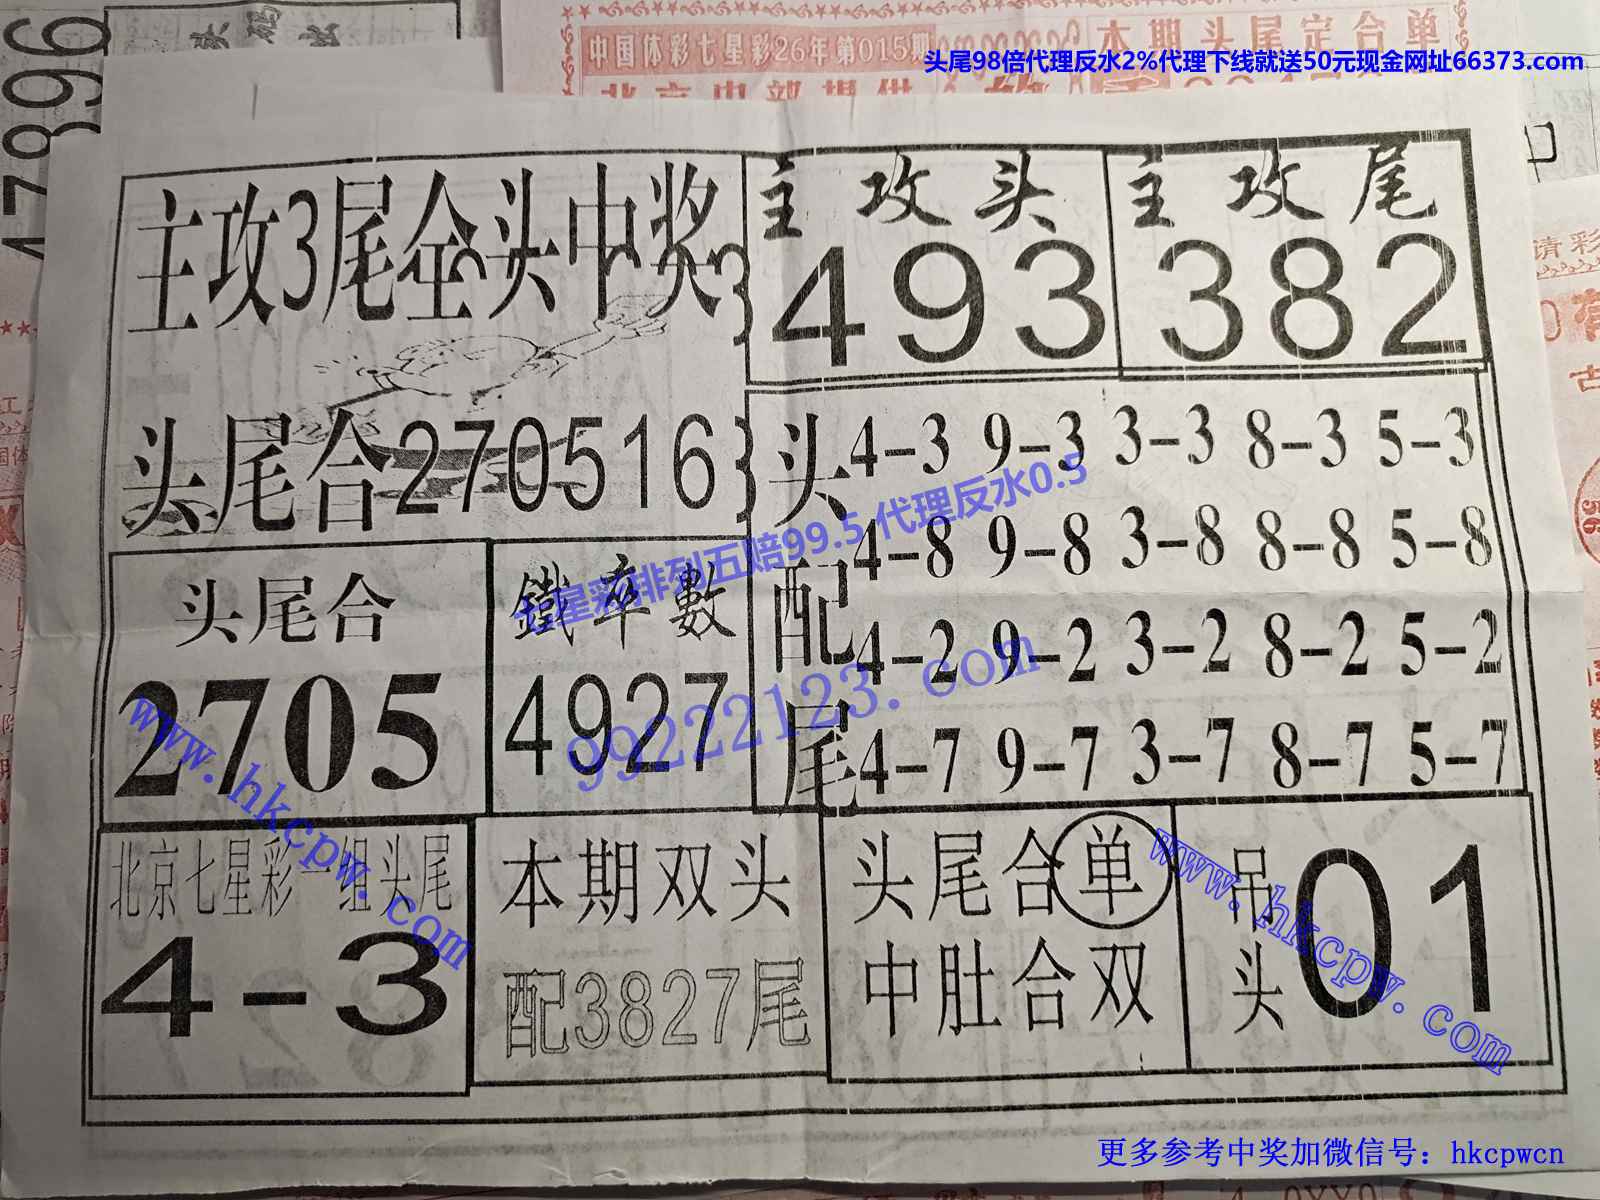 47896
中国体彩七星彩26年第015期
本期头尾定合单
头尾98倍代理反水2%代理下线就送50元现金网址66373.com
主攻3尾全头中奖
主攻头
493
主攻尾
382
头尾合270516
头配尾
4-3 9-3 3-3 8-3 5-3
4-8 9-8 3-8 8-8 5-8
4-2 9-2 3-2 8-2 5-2
4-7 9-7 3-7 8-7 5-7
七星彩排列五赔99.5 代理反水0.5
头尾合
2705
鐵率數
4927
99222123.com
www.hkcpw.com
北京七星彩一组头尾
4-3
本期双头
配3827尾
头尾合单
中肚合双
吊头
01
www.hkcpw.com
更多参考中奖加微信号：hkcpwcn